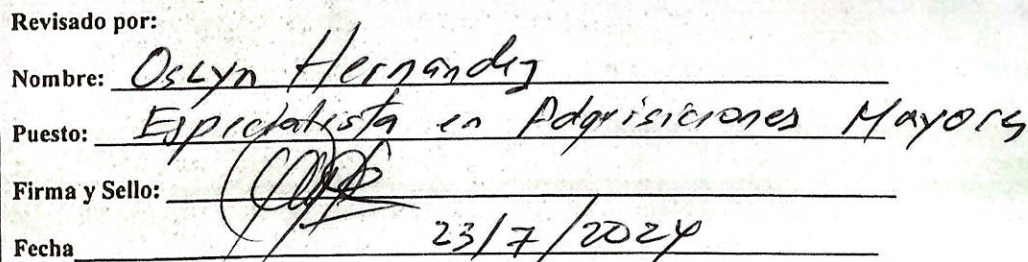 Revisado por:
Nombre: Oscyn Hernández
Puesto: Especialista en Adquisiciones Mayores
Firma y Sello:
Fecha 23/7/2024